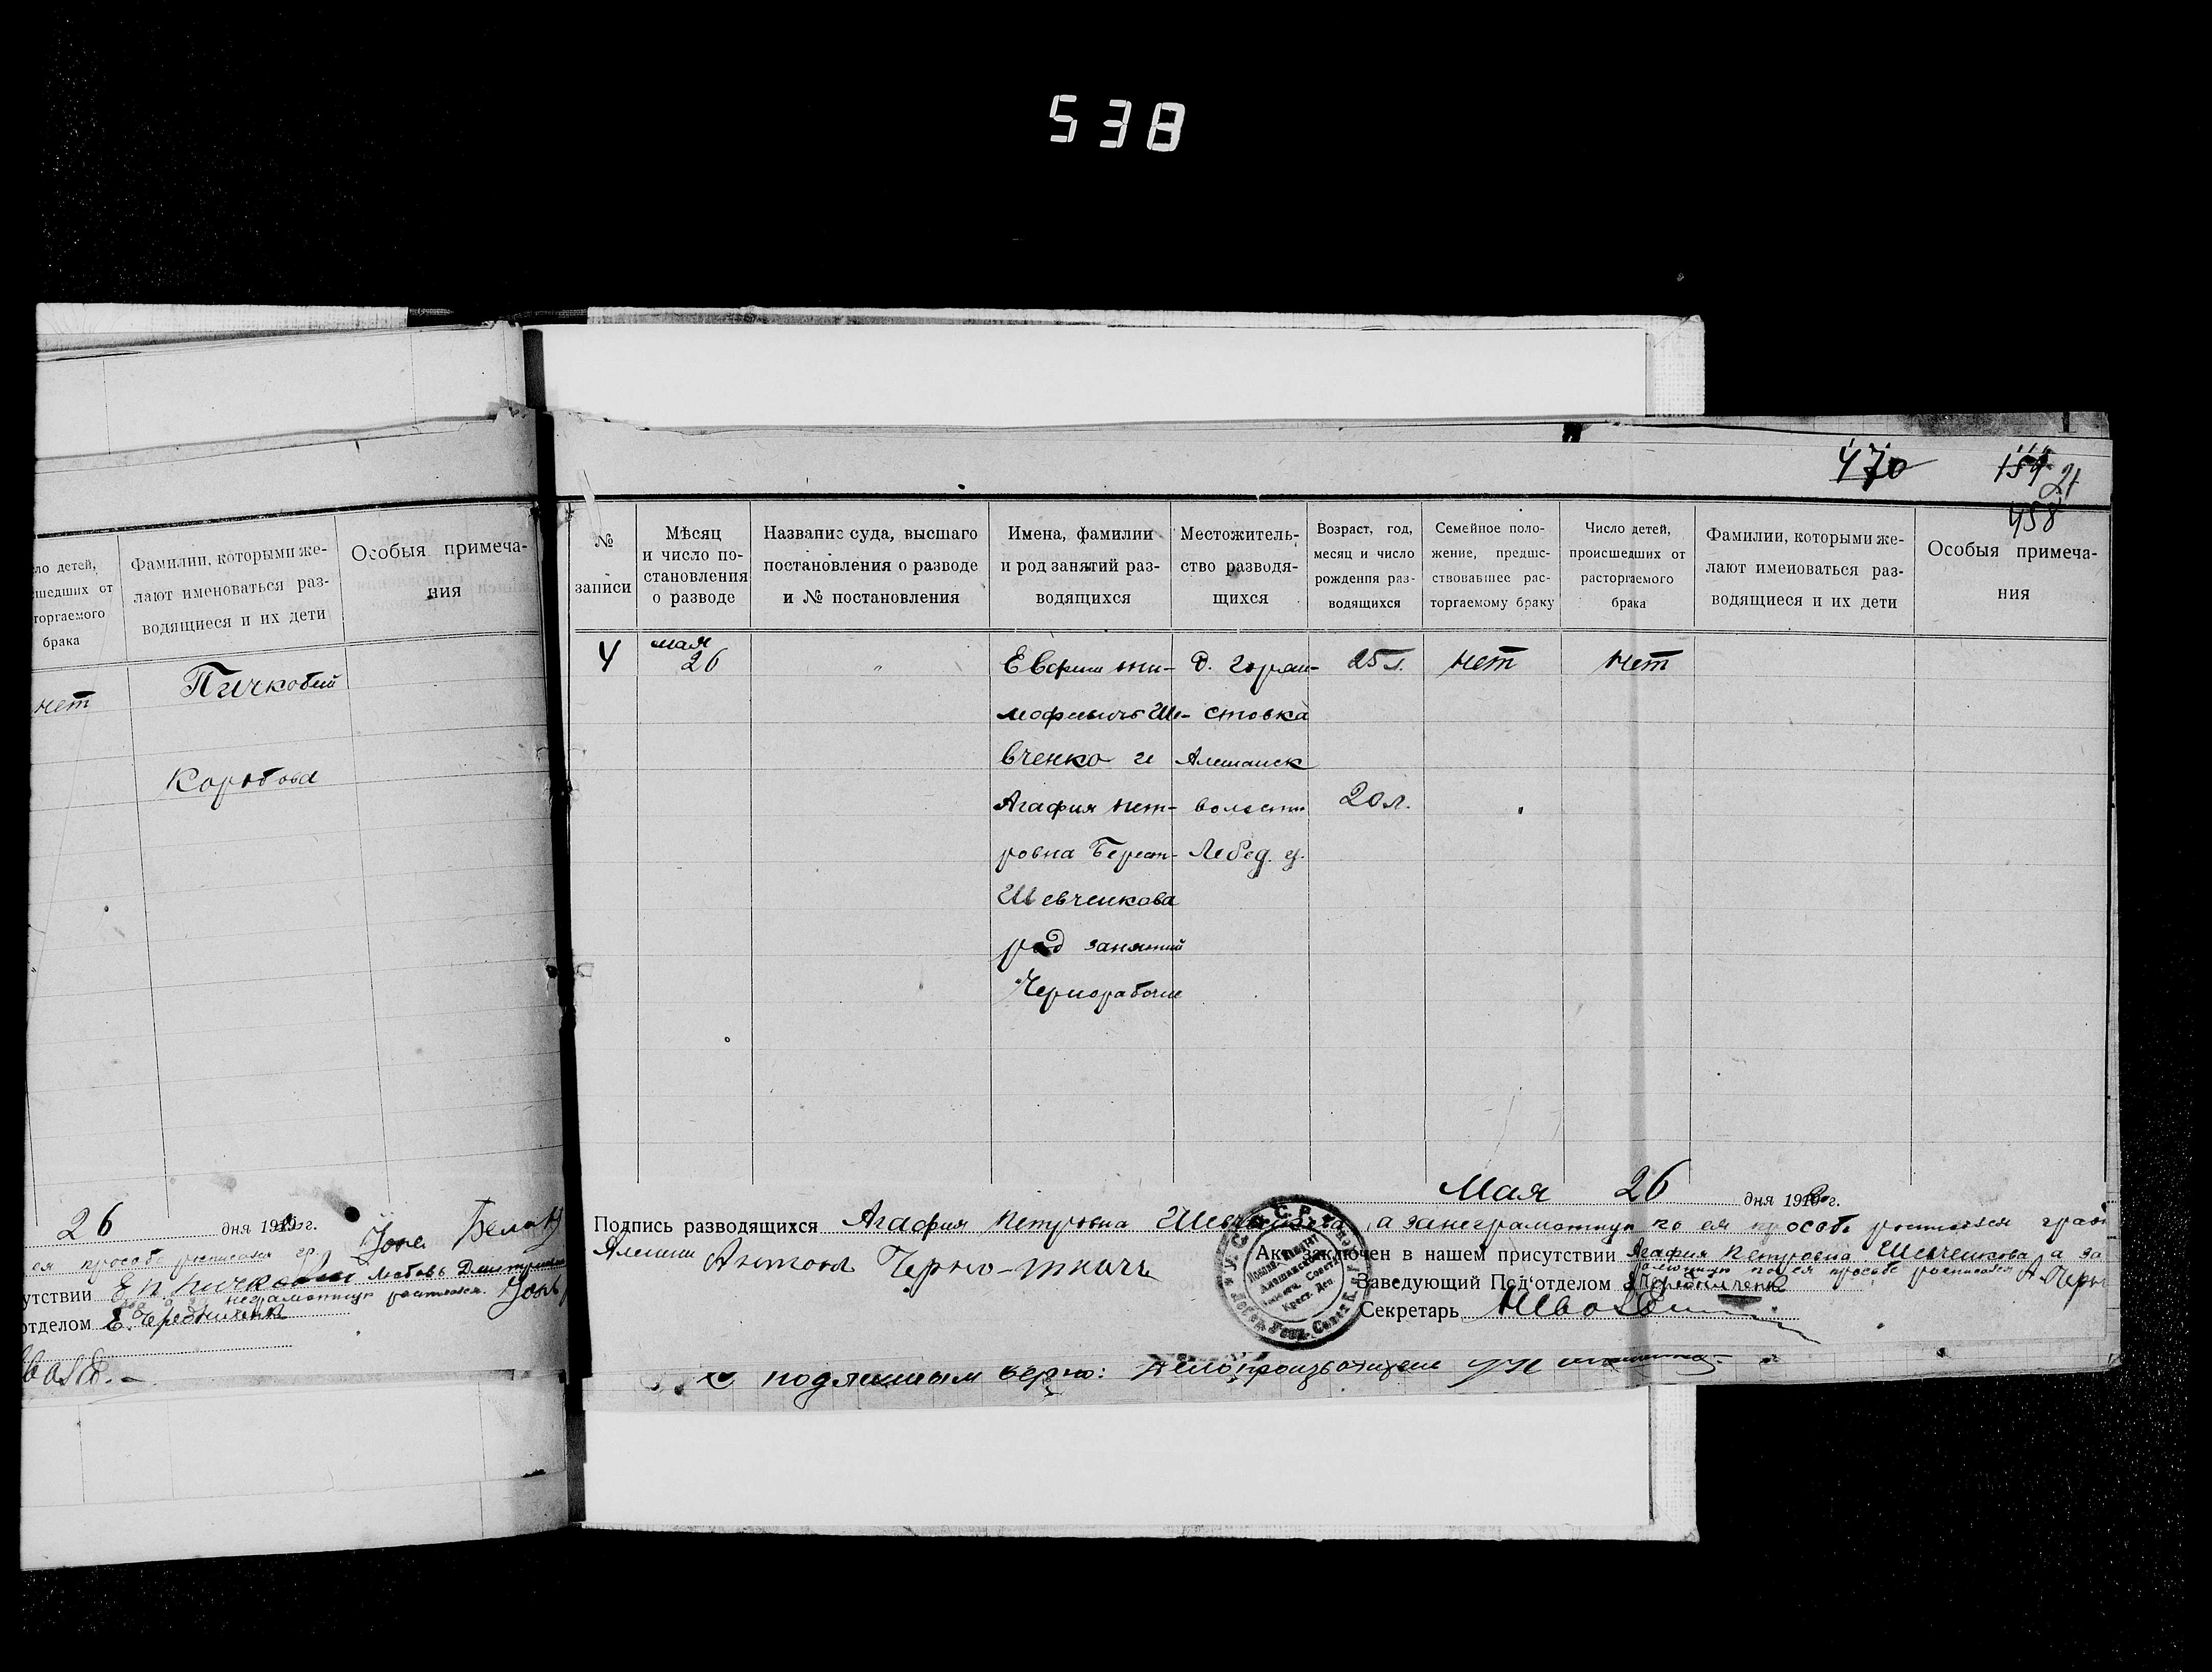 538
470
154
21
458
ло детей,
сшедших от
торгаемого
брака
Фамилии, которыми же-
лают именоваться раз-
водящиеся и их дети
Особыя примеча-
ния
нет
Пичкобий
Коробова
26 дня 19 г.
ея просьбе росписался гр.
утствии
неграмотную
отделом Е. Чередниченко
№
записи
Мѣсяц
и число по-
становления
о разводе
Название суда, высшаго
постановления о разводе
и № постановления
Имена, фамилии
и род занятий раз-
водящихся
Местожитель-
ство разводя-
щихся
Возраст, год,
месяц и число
рождения раз-
водящихся
Семейное поло-
жение, предше-
ствовавшее рас-
торгаемому браку
Число детей,
происшедших от
расторгаемого
брака
Фамилии, которыми же-
лают именоваться раз-
водящиеся и их дети
Особыя примеча-
ния
4
мая
26
"
Евфим Ти-
мофеевичъ Ше-
вченко и
Агафия Пет-
ровна Берест-
Шевченкова
род занятий
Чернорабочие
д. Гордеи-
стовка
Алешанск
волости
Лебед. у.
25 л.
20 л.
нет
"
нет
Мая 26 дня 19 г.
Подпись разводящихся Агафия Петровна Шевченкова, а занеграмотную по ея просьбе росписался
Антон Черно-
Акт заключен в нашем присутствии Агафия Петровна Шевченкова а за
по ея просьбе росписался А. Черн
Заведующий Под'отделом Е. Чередниченко
Секретарь
У.С.С.Р.
С подлинным верно: Делопроизводитель